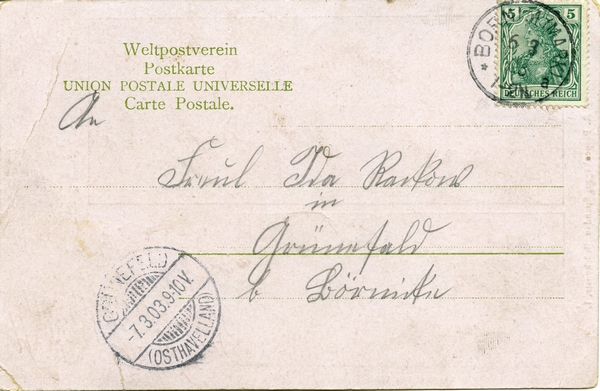 Weltpostverein
Postkarte
UNION POSTALE UNIVERSELLE
Carte Postale.
5 5
DEUTSCHES REICH
An
Freul Ida Rackow
in
Grünefald
b Börnicke
GRÜNEFELD
-7.3.03.9-10V.
(OSTHAVELLAND)